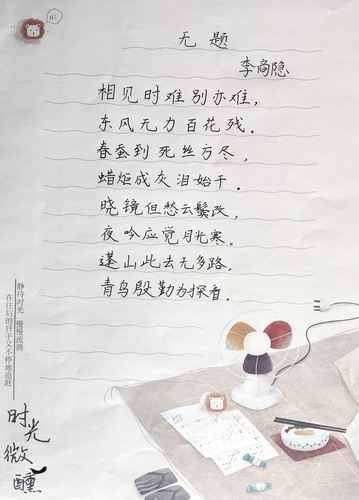 Hi
无题
李商隐
相见时难别亦难，
东风无力百花残．
春蚕到死丝方尽，
蜡炬成灰泪始干．
晓镜但愁云鬓改，
夜吟应觉月光寒．
蓬山此去无多路，
青鸟殷勤为探看．
静待时光 慢慢流淌
在往后的日子又不停地追赶
时光微醺